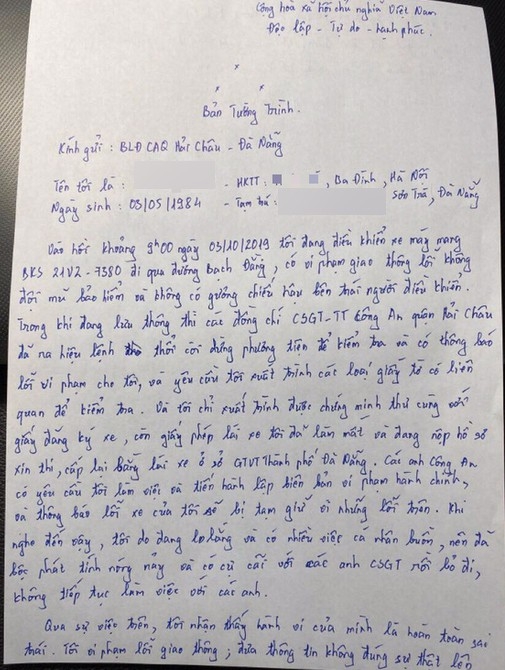 Cộng hòa xã hội chủ nghĩa Việt Nam
Độc lập - Tự do - hạnh phúc.
Bản Tường Trình.
Kính gửi : BLĐ CAQ Hải Châu - Đà Nẵng
Tên tôi là : - HKTT : , Ba Đình, Hà Nội
Ngày sinh : 03/05/1984 - Tạm trú : Sơn Trà, Đà Nẵng
Vào hồi khoảng 9h00 ngày 03/10/2019 tôi đang điều khiển xe máy mang
BKS 21V2 - 7380 đi qua đường Bạch Đằng, có vi phạm giao thông lỗi không
đội mũ bảo hiểm và không có gương chiếu hậu bên trái người điều khiển.
Trong khi đang lưu thông thì các đồng chí CSGT-TT Công An quận Hải Châu
đã ra hiệu lệnh thổi còi dừng phương tiện để kiểm tra và có thông báo
lỗi vi phạm cho tôi, và yêu cầu tôi xuất trình các loại giấy tờ có liên
quan để kiểm tra. Và tôi chỉ xuất trình được chứng minh thư cùng với
giấy đăng ký xe, còn giấy phép lái xe tôi đã làm mất và đang nộp hồ sơ
xin thi, cấp lại bằng lái xe ở sở GTVT Thành phố Đà Nẵng. Các anh Công An
có yêu cầu tôi làm việc và tiến hành lập biên bản vi phạm hành chính,
và thông báo lỗi xe của tôi sẽ bị tạm giữ vì những lỗi trên. Khi
nghe đến vậy, tôi do đang lo lắng và có nhiều việc cá nhân buồn, nên đã
bộc phát tính nóng nảy và có cự cãi với các anh CSGT rồi bỏ đi,
không tiếp tục làm việc với các anh.
Qua sự việc trên, tôi nhận thấy hành vi của mình là hoàn toàn sai
trái. Tôi vi phạm lỗi giao thông, đưa thông tin không đúng sự thật lên